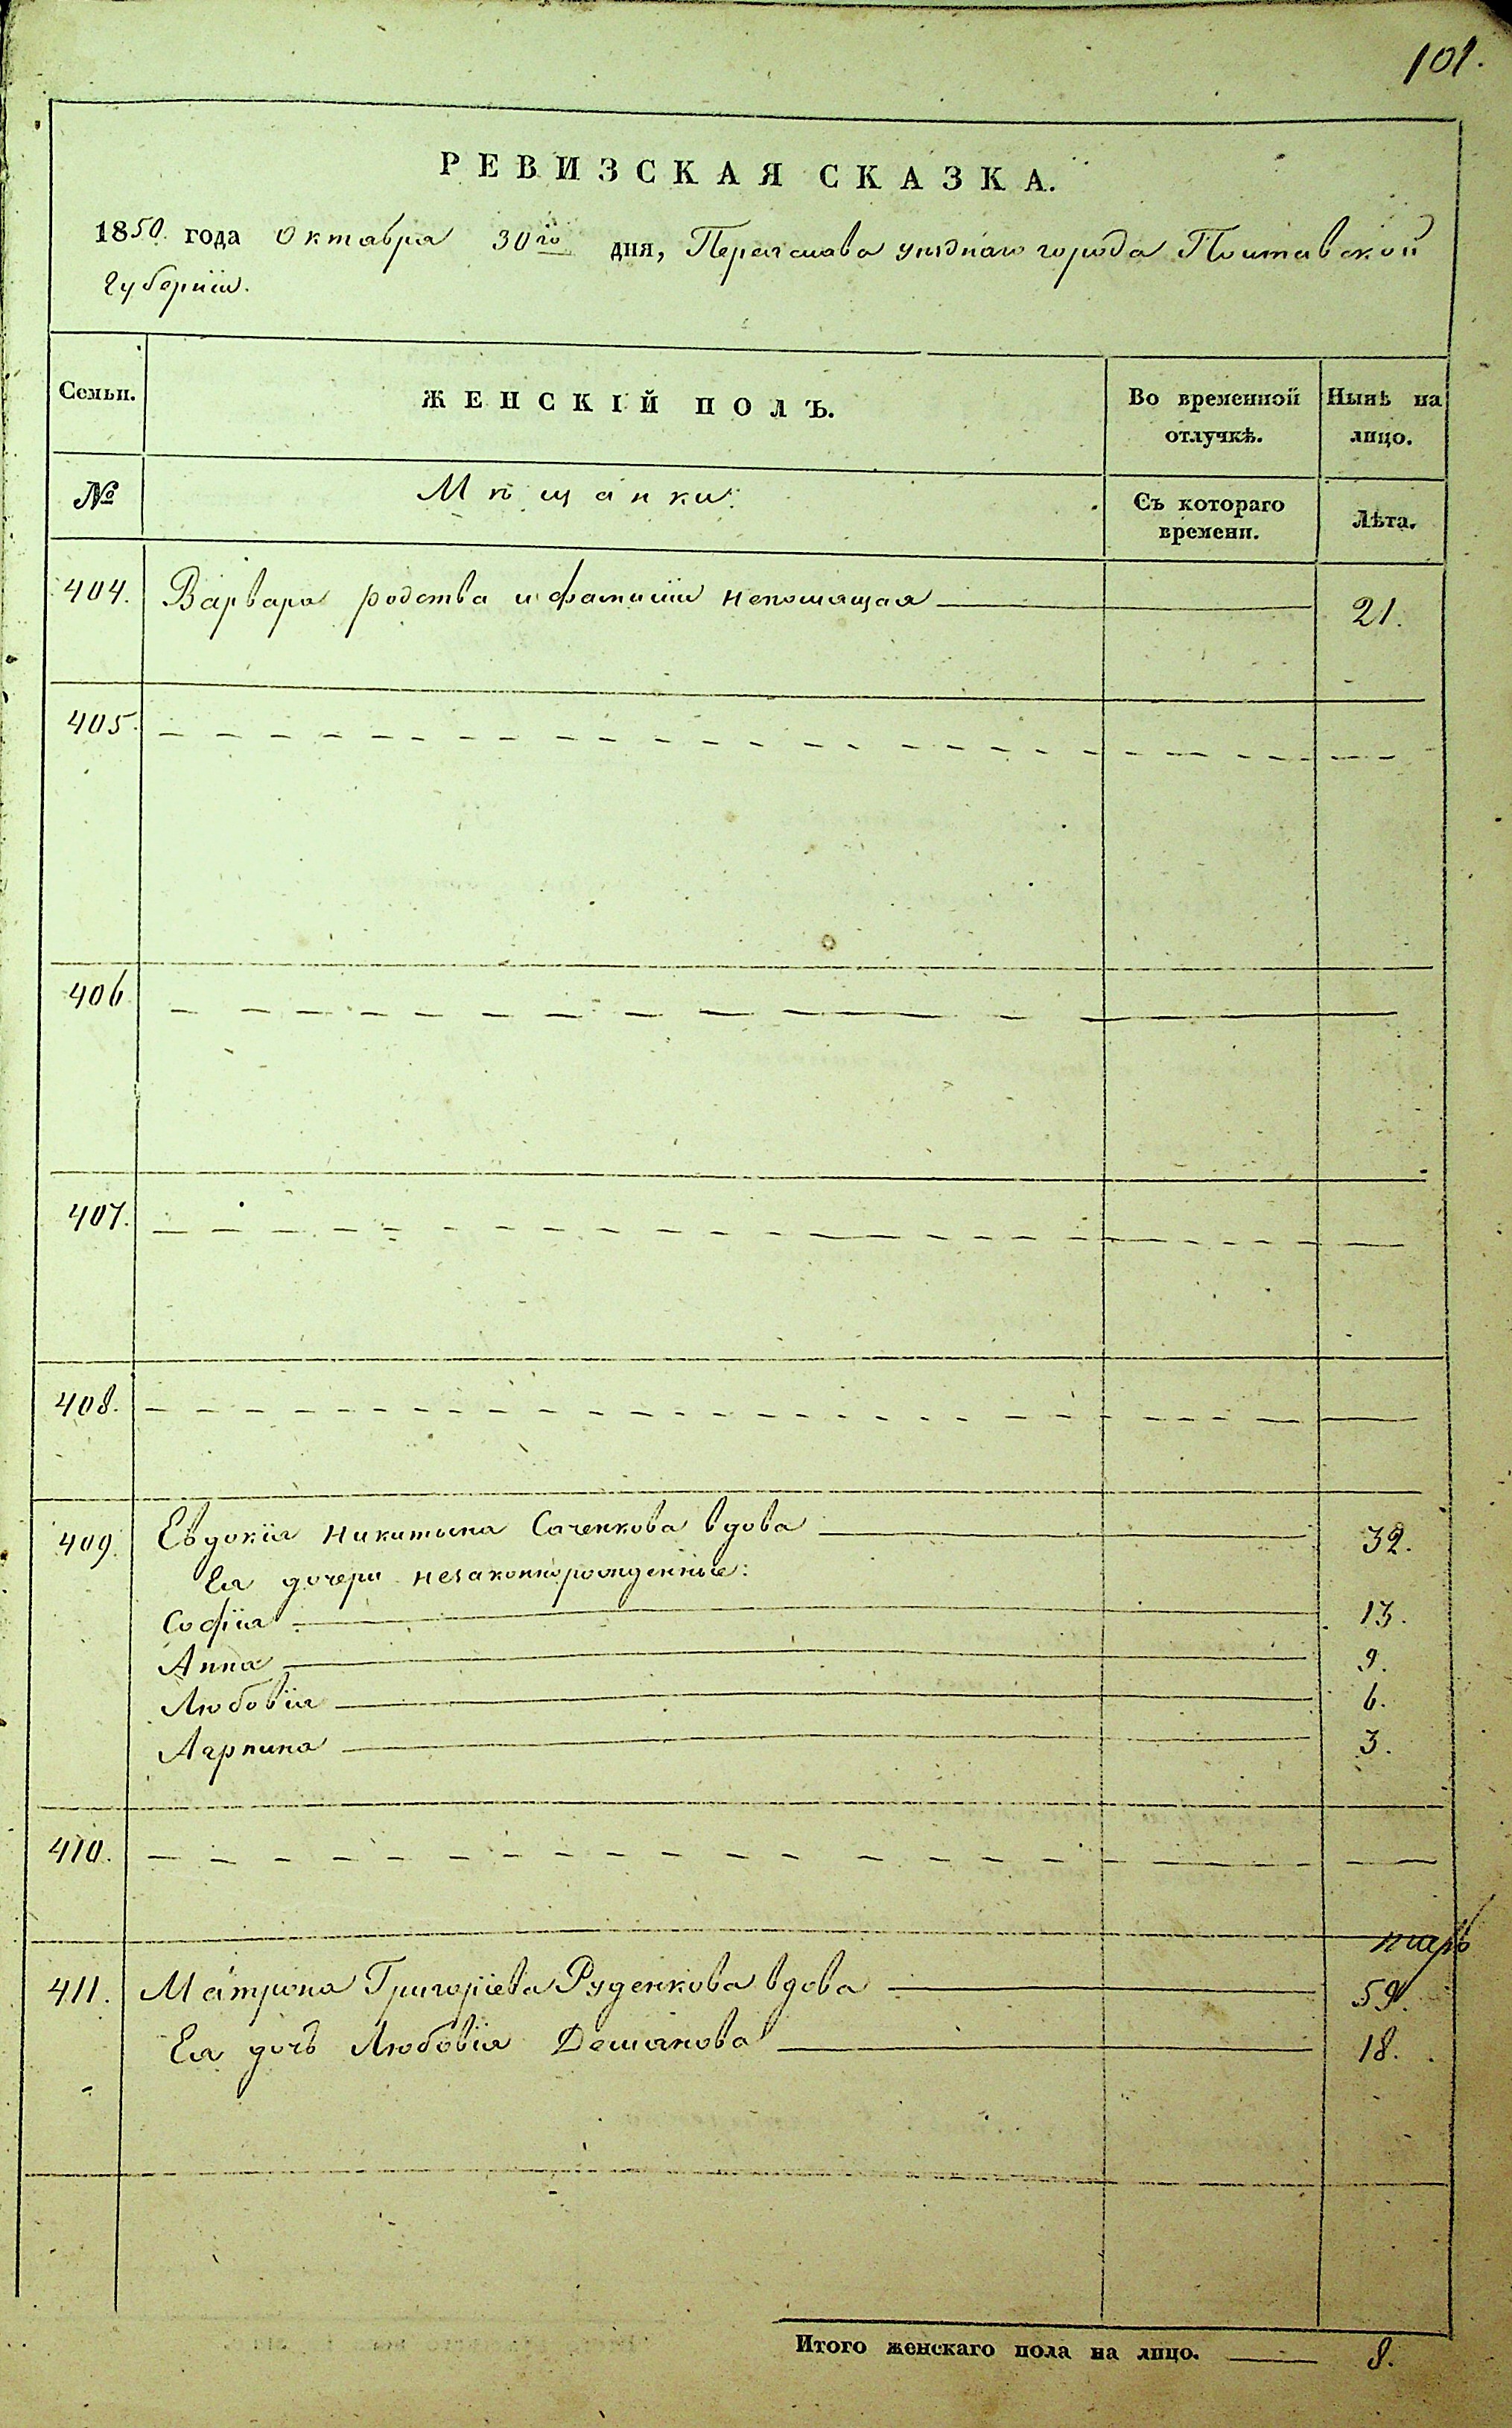 101.
РЕВИЗСКАЯ СКАЗКА.
1850. года Октября 30го дня, Переяслава уѣзднаго города Полтавской
Губерніи.
Семьи.
ЖЕНСКІЙ ПОЛЪ.
Во временной отлучкѣ.
Нынѣ на лицо.
№
Мѣщанки:
Съ котораго времени.
Лѣта.
404. Варвара родства и фамиліи непомнящая 21.
405.
406
407.
408.
409. Евдокія Никитына Саченкова вдова 32.
Ея дочери незаконнорожденные:
Софія 13.
Анна 9.
Любовія 6.
Агрпина 3.
410.
411. Матрона Григоріева Руденкова вдова 59.
Ея дочь Любовія Демянова 18.
Итого женскаго пола на лицо. 8.